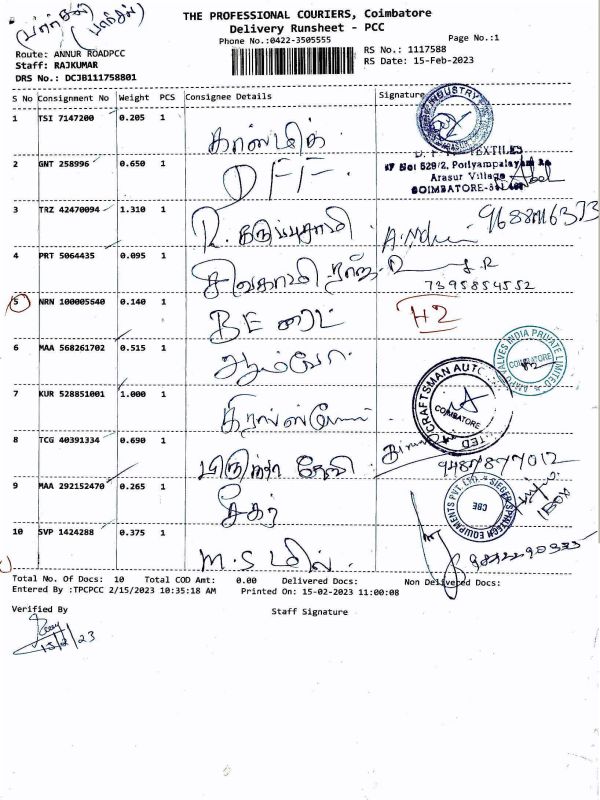 THE PROFESSIONAL COURIERS, Coimbatore
Delivery Runsheet - PCC
Phone No.:0422-3505555
Page No.:1
Route: ANNUR ROADPCC
Staff: RAJKUMAR
DRS No.: DCJB111758801
RS No.: 1117588
RS Date: 15-Feb-2023
S No Consignment No Weight PCS Consignee Details Signature
1 TSI 7147200 0.205 1
2 GNT 258996 0.650 1 DFF
TEXTILES
Arasur Village
COIMBATORE
3 TRZ 42470094 1.310 1 R. கருப்புசாமி
4 PRT 5064435 0.095 1 சிவகாமி
7395854552
5 NRN 100005640 0.140 1 BE லைட் H2
6 MAA 568261702 0.515 1 ஆம்போ
VALVES INDIA PRIVATE LIMITED
COIMBATORE
7 KUR 528851001 1.000 1
CRAFTSMAN AUTO
COIMBATORE
8 TCG 40391334 0.690 1 தேவி 9487877012
9 MAA 292152470 0.265 1 சீகர்
SIEGER SPINTECH EQUIPMENTS PVT LTD.
CBE
10 SVP 1424288 0.375 1 M.S மில்
Total No. Of Docs: 10 Total COD Amt: 0.00 Delivered Docs: Non Delivered Docs:
Entered By :TPCPCC 2/15/2023 10:35:18 AM Printed On: 15-02-2023 11:00:08
Verified By Staff Signature
15/2/23